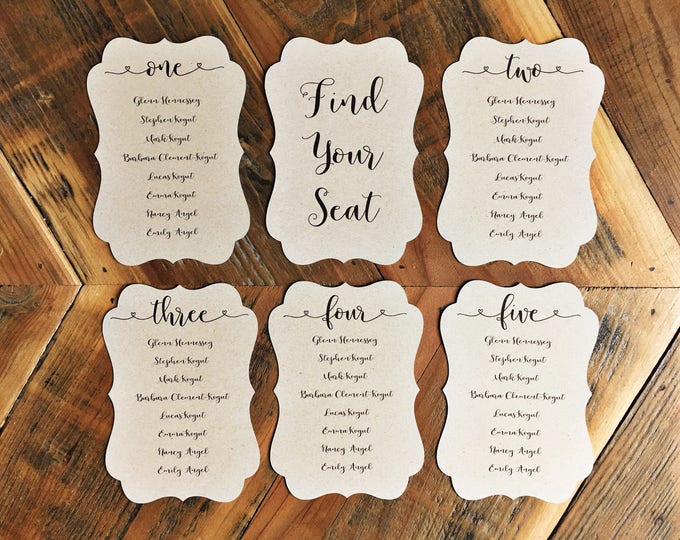 one
Glenn Hennessey
Stephen Kogut
Mark Kogut
Barbara Clement-Kogut
Lucas Kogut
Emma Kogut
Nancy Angel
Emily Angel
Find
Your
Seat
two
Glenn Hennessey
Stephen Kogut
Mark Kogut
Barbara Clement-Kogut
Lucas Kogut
Emma Kogut
Nancy Angel
Emily Angel
three
Glenn Hennessey
Stephen Kogut
Mark Kogut
Barbara Clement-Kogut
Lucas Kogut
Emma Kogut
Nancy Angel
Emily Angel
four
Glenn Hennessey
Stephen Kogut
Mark Kogut
Barbara Clement-Kogut
Lucas Kogut
Emma Kogut
Nancy Angel
Emily Angel
five
Glenn Hennessey
Stephen Kogut
Mark Kogut
Barbara Clement-Kogut
Lucas Kogut
Emma Kogut
Nancy Angel
Emily Angel